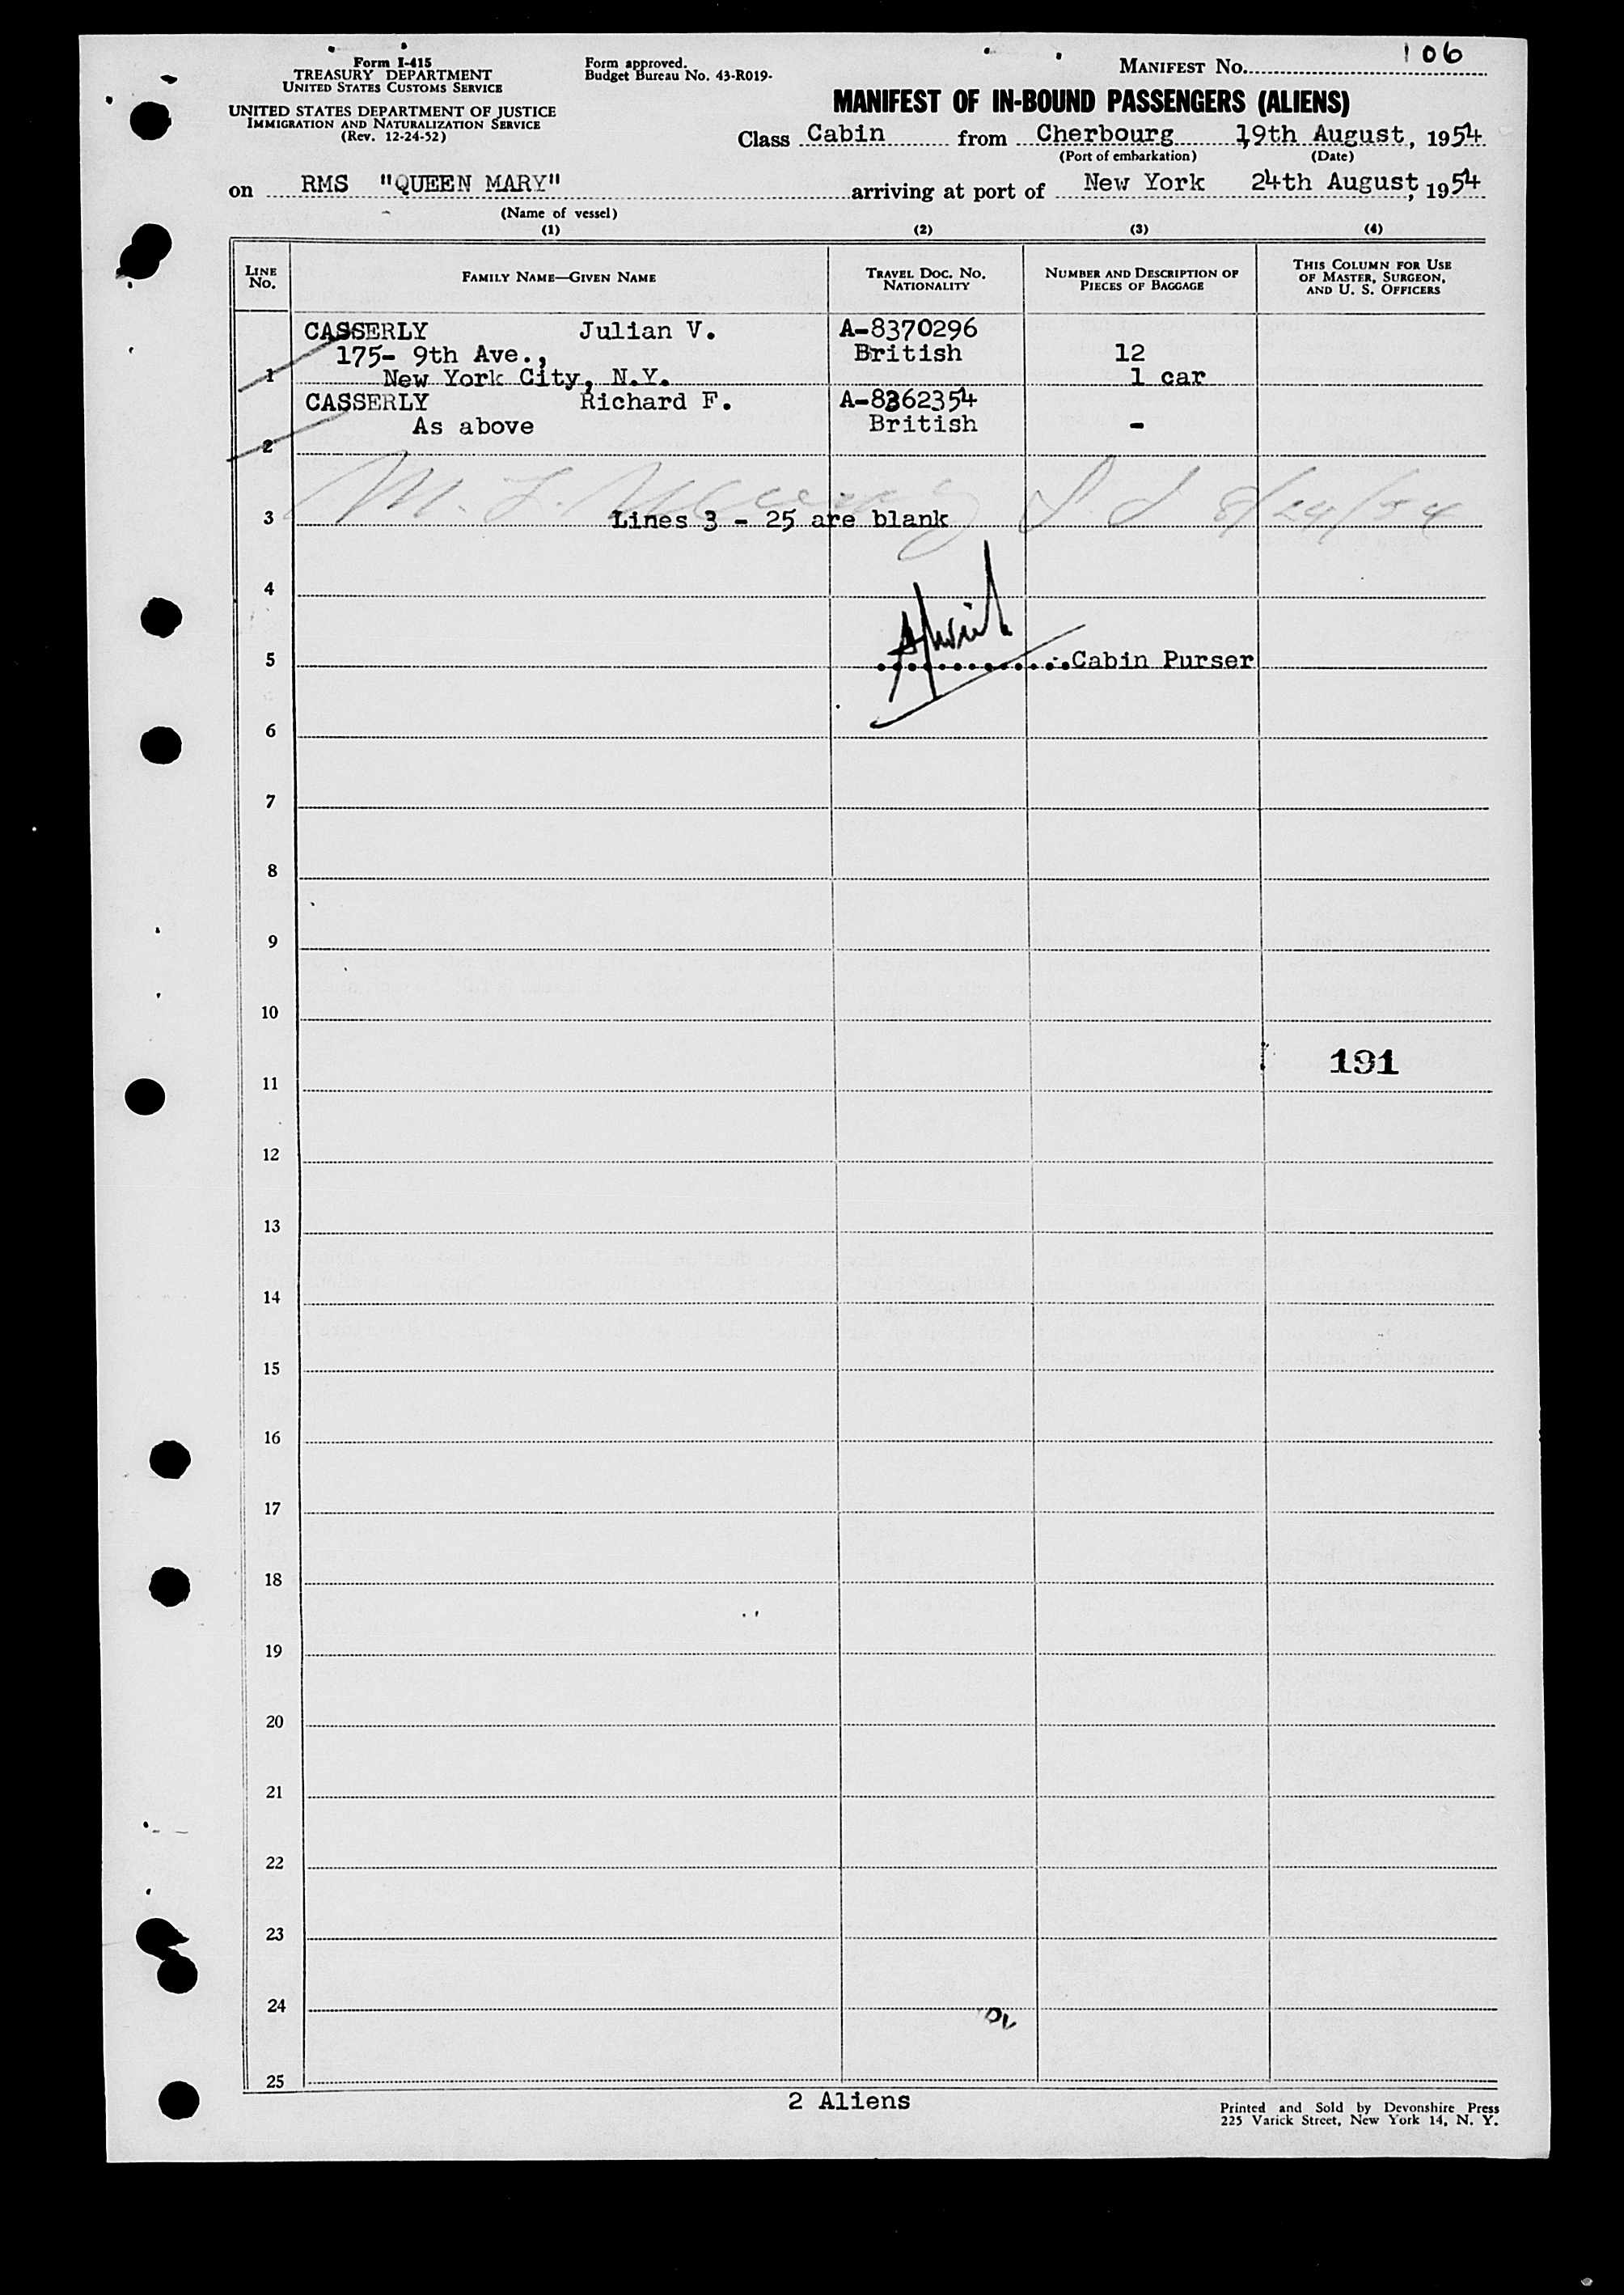 Form I-415
TREASURY DEPARTMENT
UNITED STATES CUSTOMS SERVICE
UNITED STATES DEPARTMENT OF JUSTICE
IMMIGRATION AND NATURALIZATION SERVICE
(Rev. 12-24-52)
Form approved.
Budget Bureau No. 43-R019-
MANIFEST NO. 106
MANIFEST OF IN-BOUND PASSENGERS (ALIENS)
Class Cabin from Cherbourg 19th August, 1954
(Port of embarkation) (Date)
on RMS "QUEEN MARY" arriving at port of New York 24th August, 1954
(Name of vessel)
(1) (2) (3) (4)
LINE NO. FAMILY NAME—GIVEN NAME TRAVEL DOC. NO. NATIONALITY NUMBER AND DESCRIPTION OF PIECES OF BAGGAGE THIS COLUMN FOR USE OF MASTER, SURGEON, AND U. S. OFFICERS
CASSERLY Julian V. A-8370296
175- 9th Ave., British 12
1 New York City, N.Y. 1 car
CASSERLY Richard F. A-8362354
As above British -
2
M. L. 8/24/54
3 Lines 3 - 25 are blank
4
5 Cabin Purser
6
7
8
9
10
191
11
12
13
14
15
16
17
18
19
20
21
22
23
24
25
2 Aliens
Printed and Sold by Devonshire Press
225 Varick Street, New York 14, N. Y.